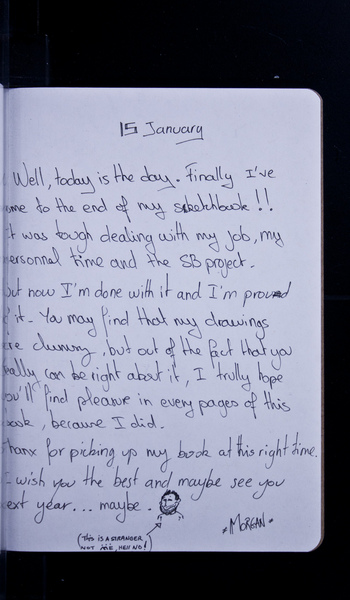 15 January
Well, today is the day. Finally I've
ome to the end of my sketchbook!!
t was tough dealing with my job, my
ersonnal time and the SB project.
ut now I'm done with it and I'm proud
f it. You may find that my drawings
re clumsy, but out of the fact that you
eally can be right about it, I trully hope
ou'll find pleasure in every pages of this
ook, because I did.
Thanx for picking up my book at this right time.
I wish you the best and maybe see you
ext year... maybe.
(This is a stranger
not me, hell no!)
Morgan